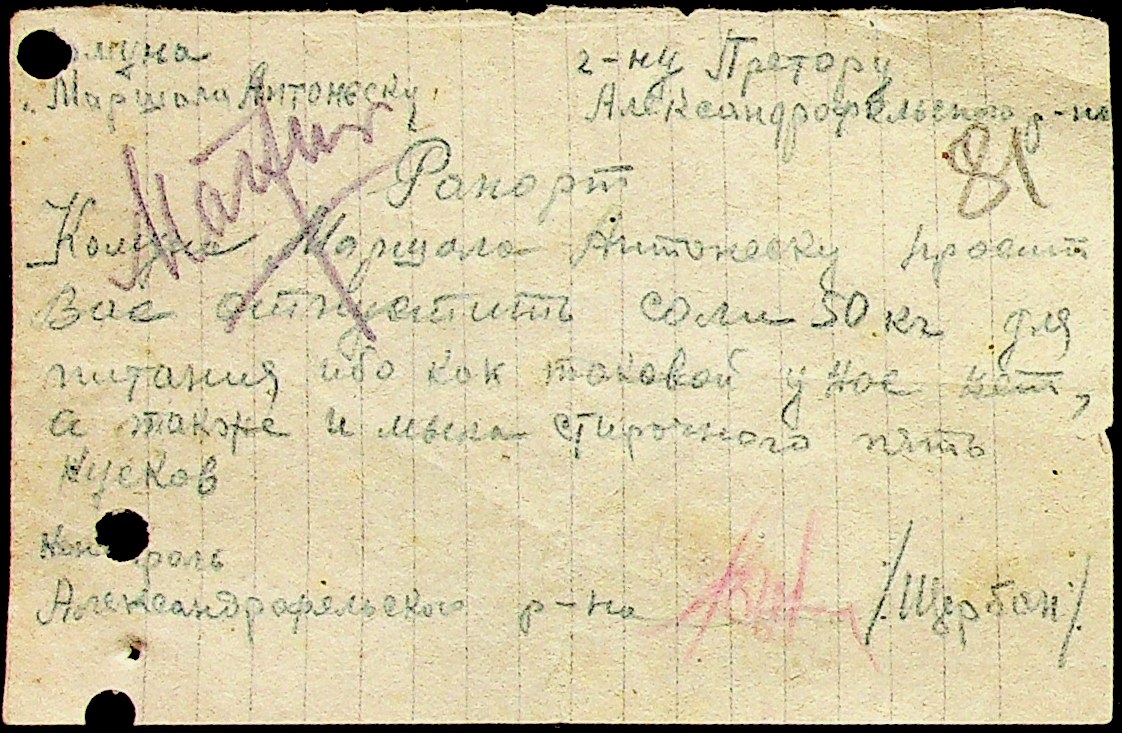 Комуна
Маршала Антонеску
г-ну Претору
Александрофельского р-на
81
Рапорт
Комуна Маршала Антонеску просит
Вас отпустить соли 50 кг для
питания ибо как таковой у нас нет,
а также и мыла стирочного пять
кусков
Контроль
Александрофельского р-на /Щербан/.